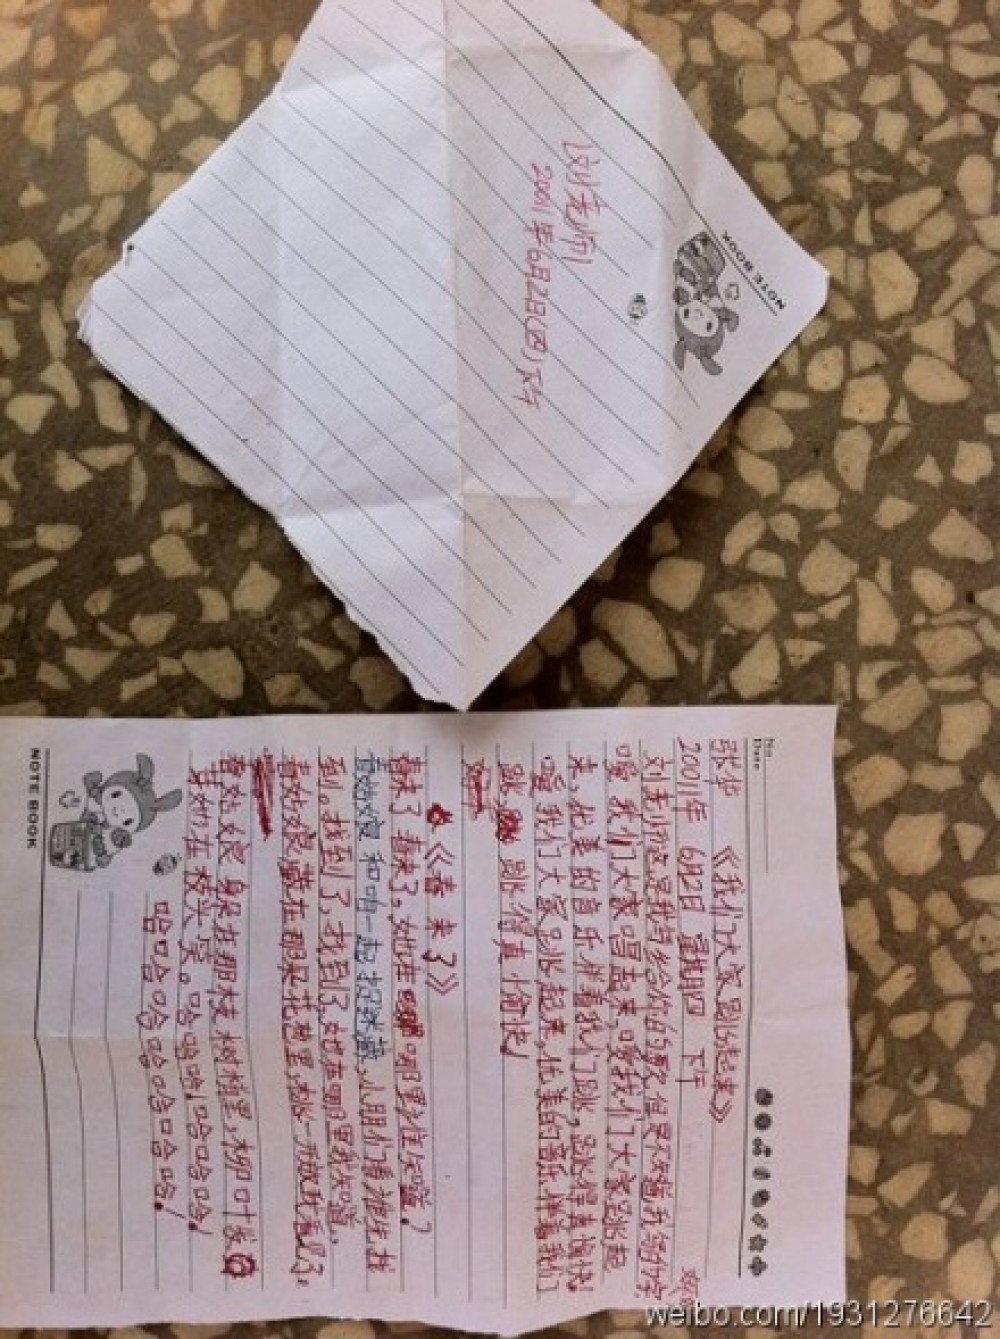 刘老师
2001年6月2日(四)下午
NOTE BOOK
No.
Date
张华 《我们大家跳起来》
2001年 6月2日 星期四 下午
刘老师这是我写给你的歌,但是不知道我写的字
嘿 我们大家唱起来,嘿我们大家跳起
来,优美的音乐伴着我们跳,跳得真愉快!
嘿 我们大家跳起来,优美的音乐伴着我们
跳, 跳得真愉快!
《春来了》
春来了 春来了。她在 哪里谁知道?
春姑娘 和咱一起捉迷藏,小朋们看谁先找
到。找到了,找到了,她在哪里我知道。
春姑娘,藏在那朵花苞里,
春姑娘 身朵在那枝树梢里,柳叶发
春姑在枝头笑。哈哈哈,哈哈哈哈!
哈哈哈哈哈哈哈哈!
NOTE BOOK
weibo.com/1931276642